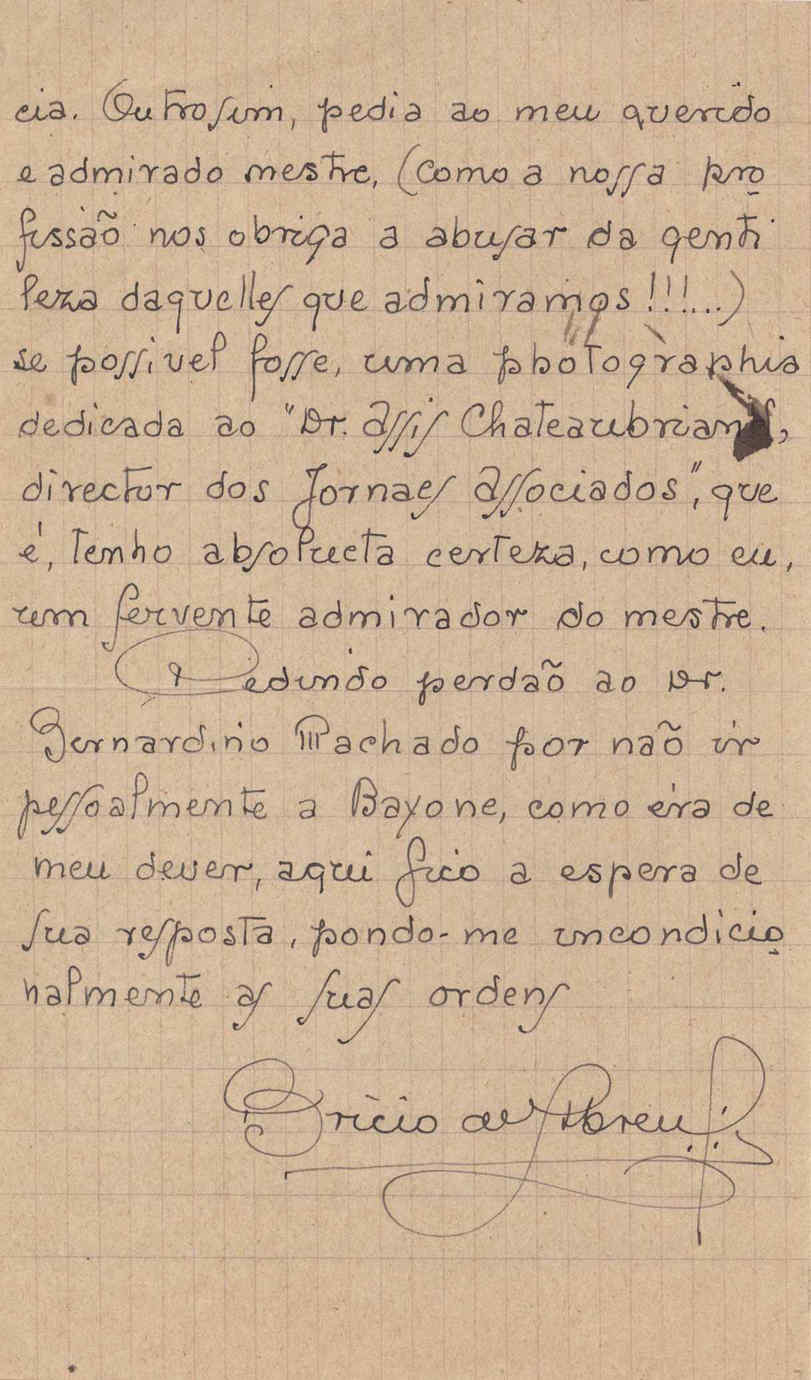 cia. Outrosim, pedia ao meu querido
e admirado mestre, (como a nossa pro
fissão nos obriga a abusar da genti
leza daquelles que admiramos!!!...)
se possivel fosse, uma photographia
dedicada ao "Dr. Assis Chateaubriand,
director dos Jornaes Associados", que
é, tenho absolucta certeza, como eu,
um fervente admirador do mestre.
Pedindo perdão ao Dr.
Bernardino Machado por não ir
pessoalmente a Bayone, como era de
meu dever, aqui fico a espera de
sua resposta, pondo-me incondicio
nalmente as suas ordens
Bricio de Abreu